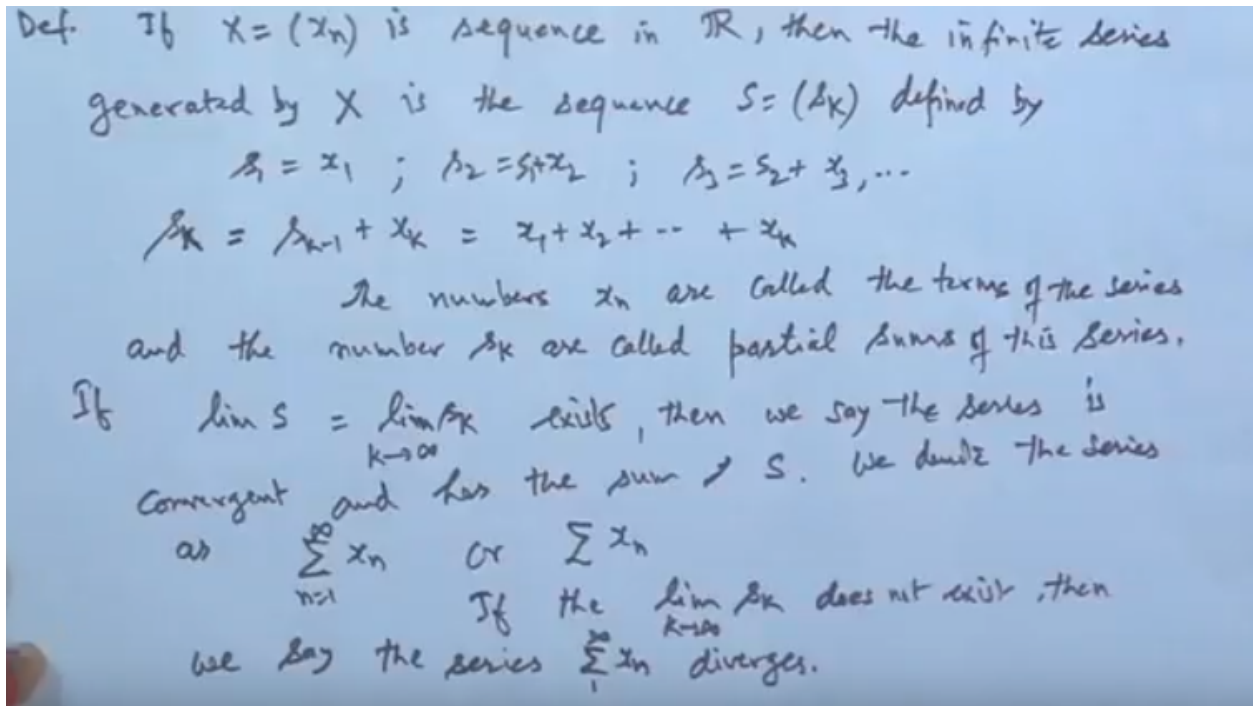 Def. If X = (xn) is sequence in ℝ, then the infinite series
generated by X is the sequence S = (sk) defined by
s1 = x1 ; s2 = s1+x2 ; s3 = s2 + x3, ...
sk = sk-1 + xk = x1 + x2 + -- + xk
The numbers xn are called the terms of the series
and the number sk are called partial sums of this series.
If lim S = lim sk exists, then we say the series is
k→∞
convergent and has the sum S. We denote the series
as ∞∑n=1 xn or ∑ xn
If the lim k→∞ sk does not exist, then
we say the series ∞∑1 xn diverges.